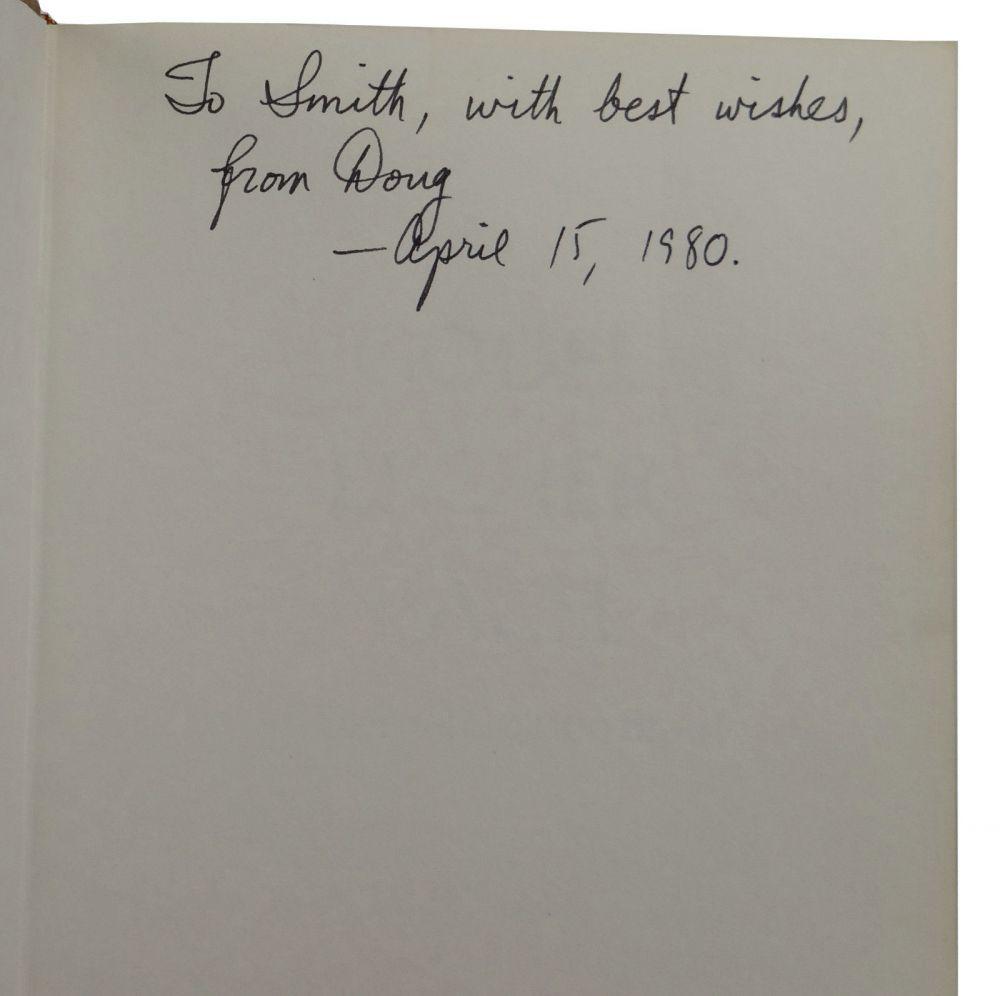 To Smith, with best wishes,
from Doug
—April 15, 1980.